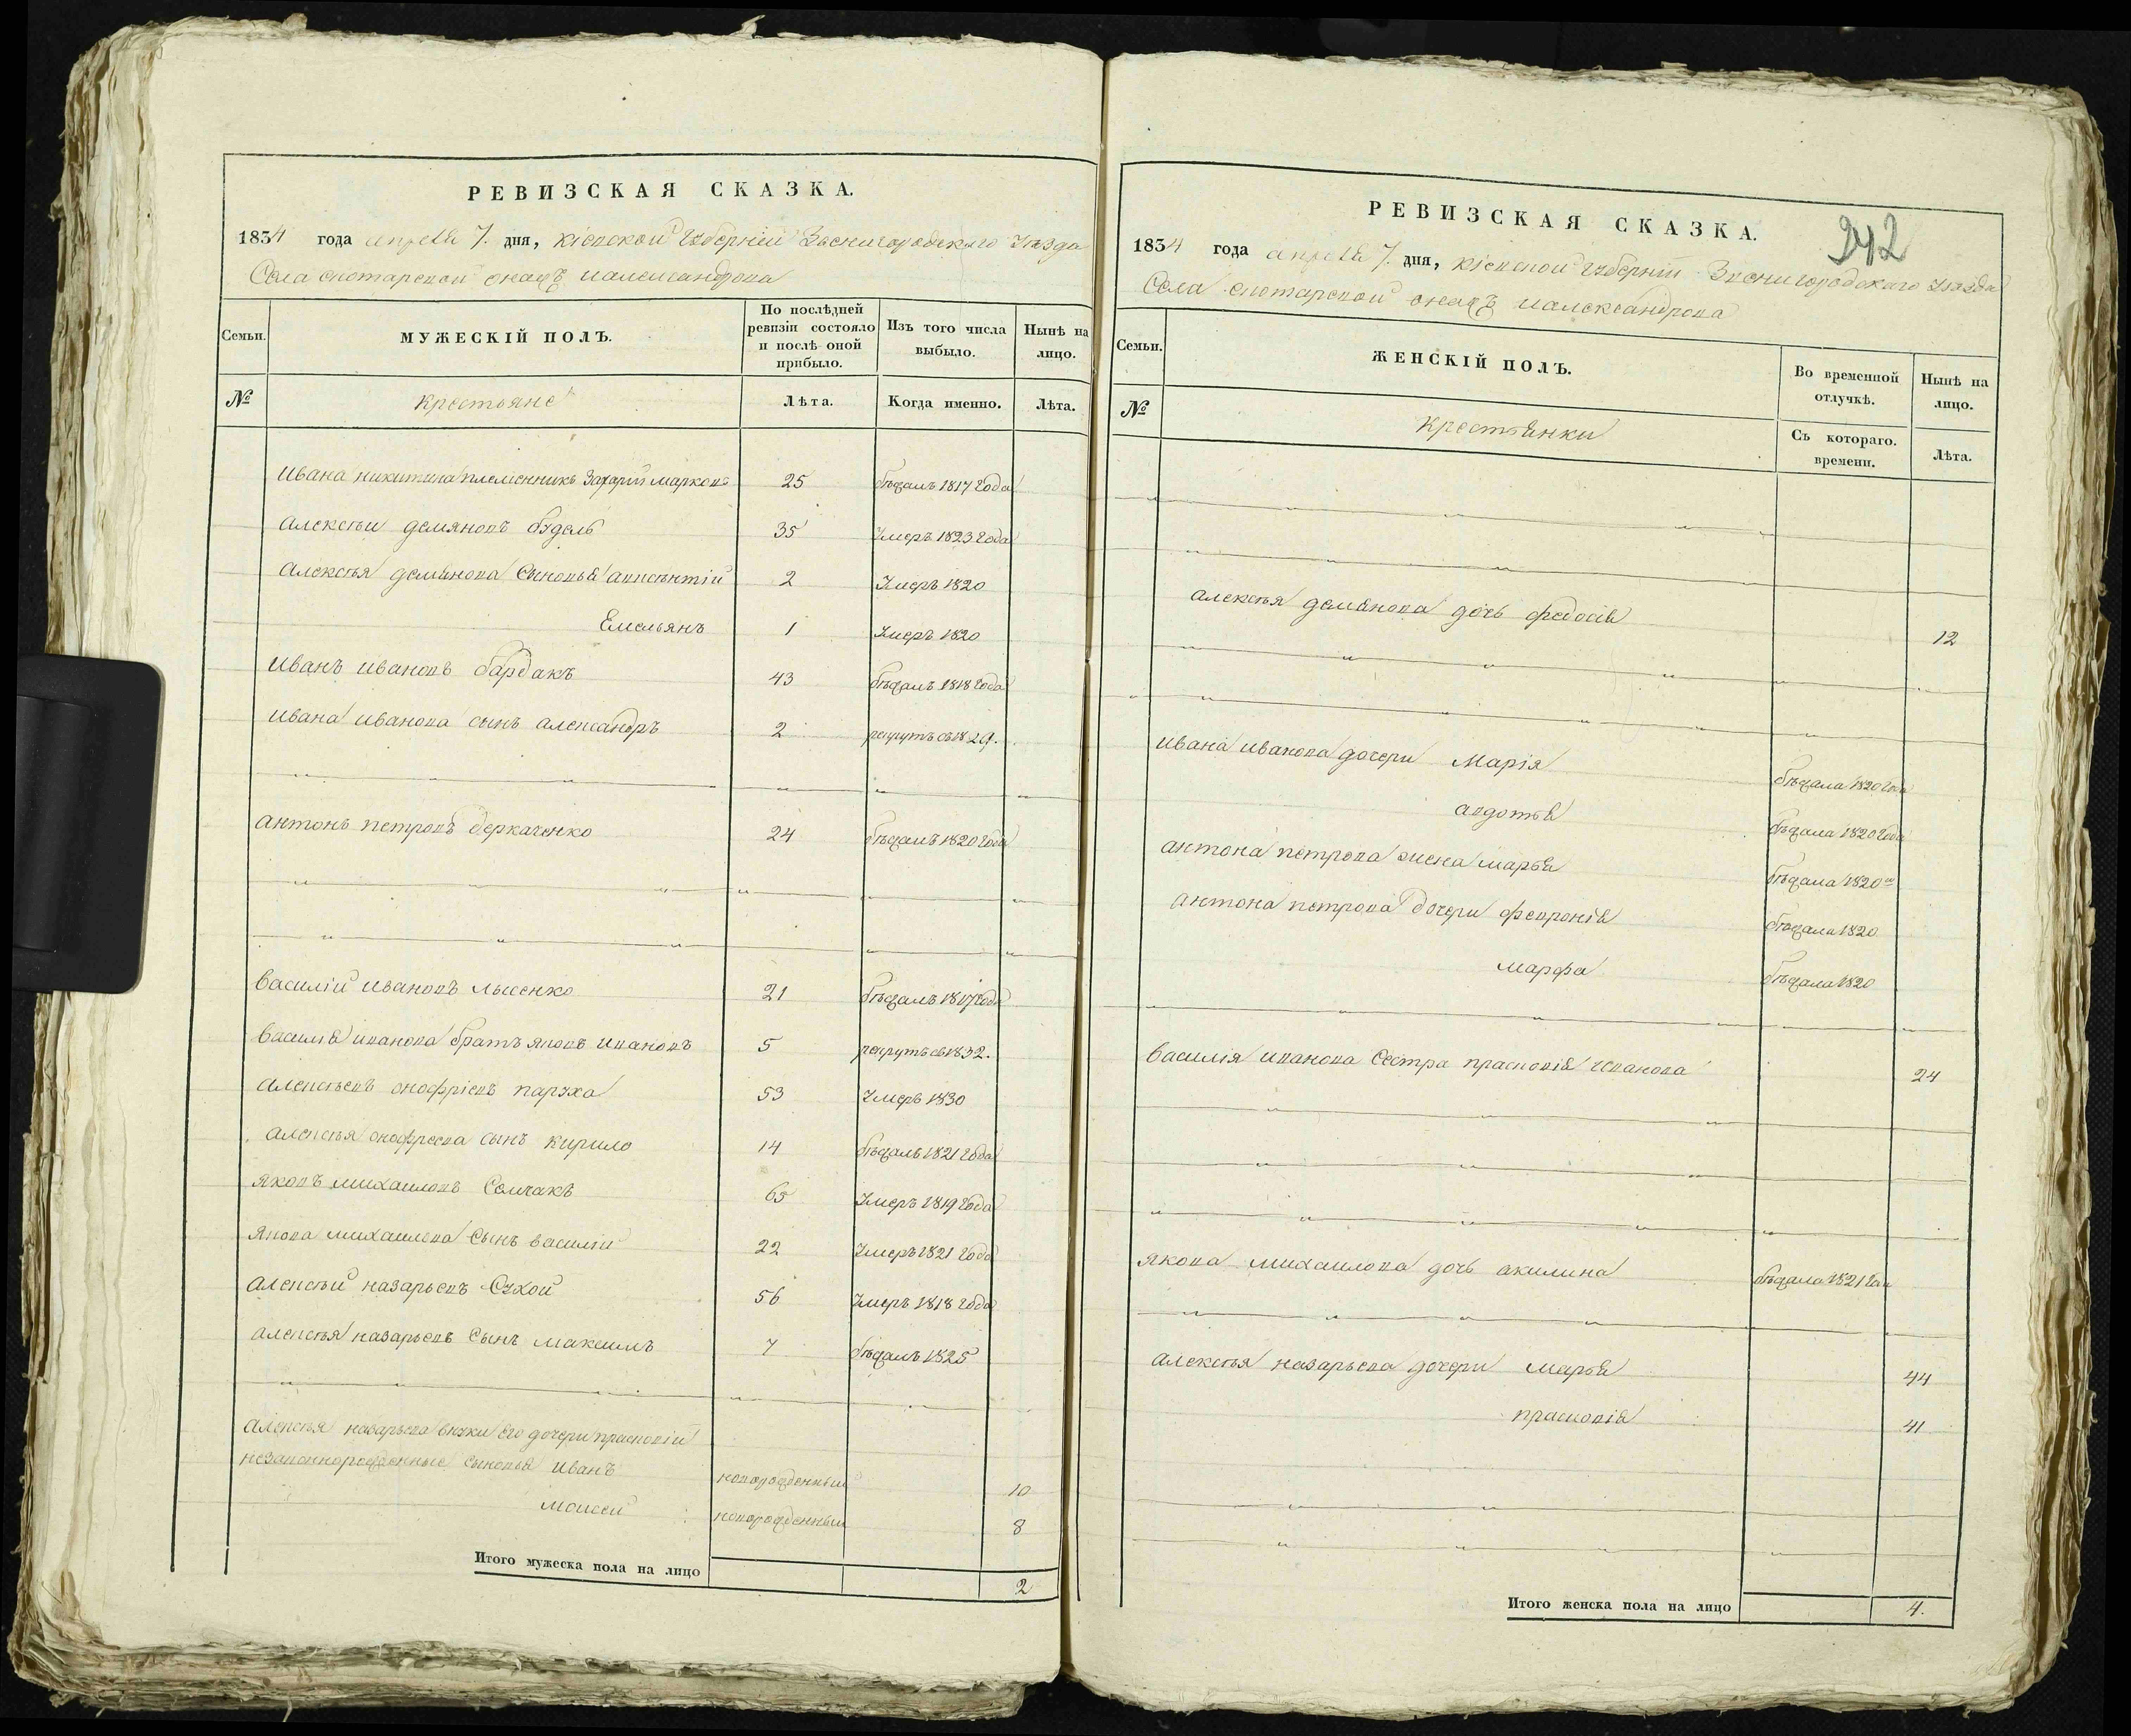 РЕВИЗСКАЯ СКАЗКА.
1834 года апреля 7. дня, Кіевской Губерніи Звенигородскаго Уезда
Села скотаревой онажъ иалександрова
Семьи.
МУЖЕСКІЙ ПОЛЪ.
По послѣдней ревизіи состояло и послѣ оной прибыло.
Изъ того числа выбыло.
Нынѣ на лицо.
№
крестьяне
Лѣта.
Когда именно.
Лѣта.
Ивана никитина племенникъ Захарій марковъ 25 бѣжалъ 1817 года
алексѣи демяновъ 35 Умеръ 1823 года
алексѣя демянова Сыновья авксѣнтій 2 Умеръ 1820
Емельянъ 1 Умеръ 1820
Иванъ ивановъ бардакъ 43 бѣжалъ 1818 года
Ивана иванова сынъ александръ 2 рекрутъ съ 1829.
антонъ петровъ деркаченко 24 бѣжалъ 1820 года
Василій ивановъ лысенко 21 бѣжалъ 1817 года
Василія иванова братъ яковъ ивановъ 5 рекрутъ съ 1832.
алексѣевъ онофріевъ паруха 53 Умеръ 1830
алексѣя онофреева сынъ кирило 14 бѣжалъ 1821 года
яковъ михаиловъ Семчакъ 65 Умеръ 1819 года
якова михаилова Сынъ василій 22 Умеръ 1821 года
алексѣй назарьевъ Сухой 56 Умеръ 1818 года
алексѣя назарьевъ Сынъ максимъ 7 бѣжалъ 1825
алексѣя назарьева внуки его дочери прасковіи
незаконнорожденные сыновья иванъ новорожденный 10
моисей новорожденный 8
Итого мужеска пола на лицо 2
РЕВИЗСКАЯ СКАЗКА.
242
1834 года апреля 7. дня, Кіевской Губерніи Звенигородскаго Уезда
Села скотаревой онажъ иалександрова
Семьи.
ЖЕНСКІЙ ПОЛЪ.
Во временной отлучкѣ.
Нынѣ на лицо.
№
Крестьянки
Съ котораго. времени.
Лѣта.
алексѣя демянова дочь федосія 12
ивана иванова дочери Марія бѣжала 1820 года
авдотья бѣжала 1820 года
антона петрова жена марья бѣжала 1820
антона петрова дочери февронія бѣжала 1820
марфа бѣжала 1820
Василія иванова Сестра прасковія иванова 24
якова михаилова дочь акилина бѣжала 1821 года
алексѣя назарьева дочери марья 44
прасковія 41
Итого женска пола на лицо 4.